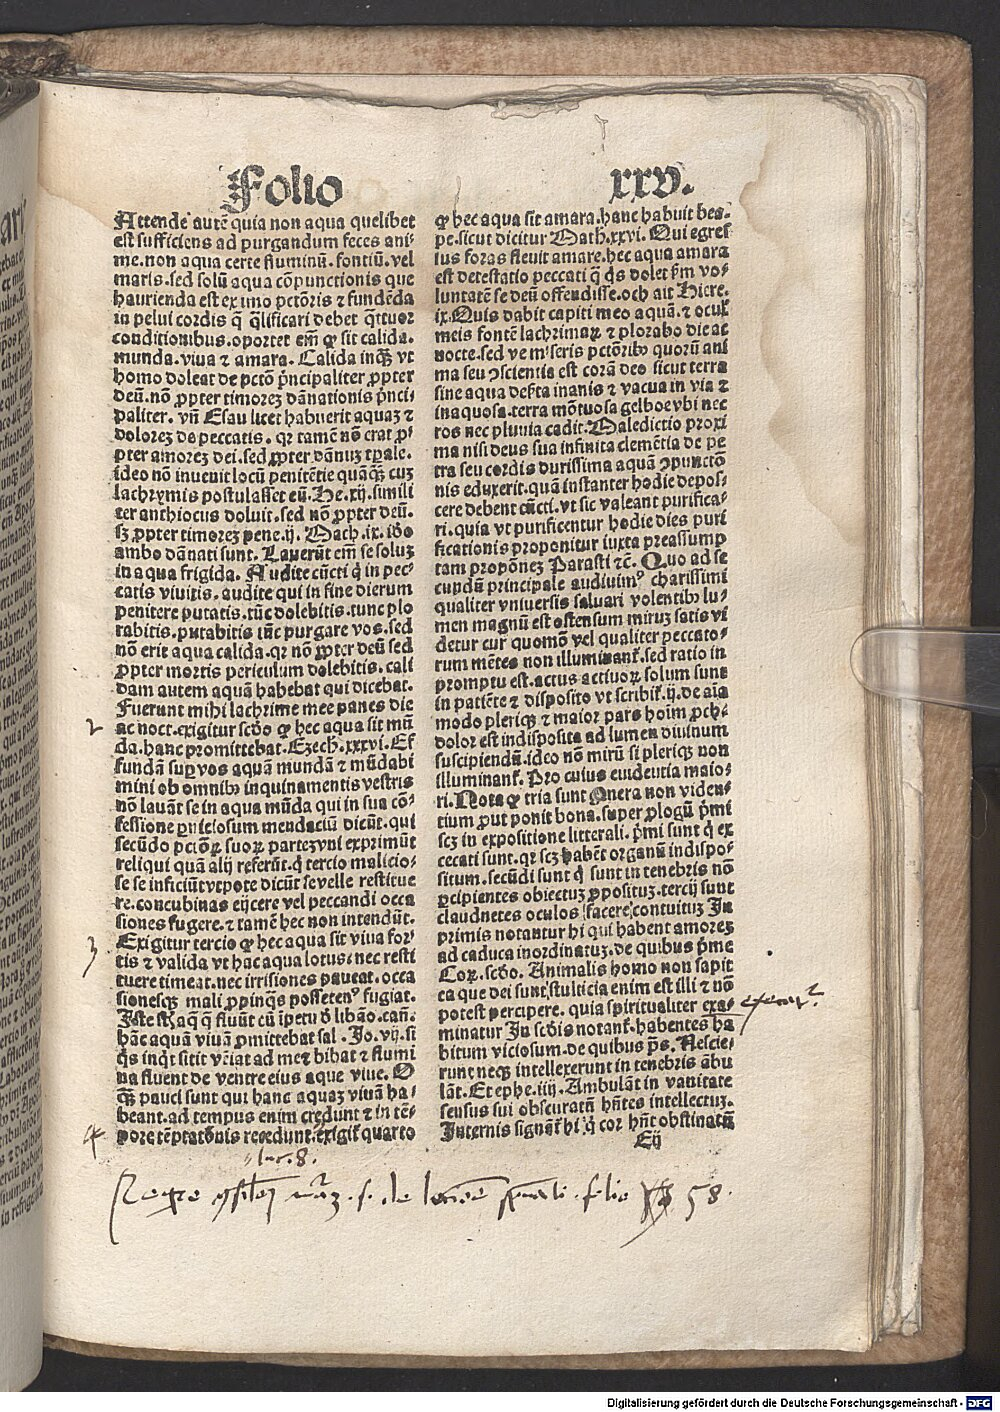 Folio xxv.
Attende autē quia non aqua quelibet
est sufficiens ad purgandum feces ani-
me. non aqua certe fluminū. fontiū. vel
matis. sed solū aqua cōpunctionis que
haurienda est ex imo pctōris ⁊ fundēda
in pelui cordis q̄ q̄lificari debet q̄ttuor
conditionibus. oportet em̄ ꝙ sit calida.
munda. viua ⁊ amara. Calida inqȝ vt
homo doleat de pctō p̄ncipaliter ꝓpter
deū. nō ꝓpter timoreȝ dānationis p̄nci-
paliter. vn̄ Esau licet habuerit aquaȝ ⁊
doloreȝ de peccatis. qr tamē nō erat ꝓ-
pter amoreȝ dei. sed ꝓpter dānuȝ tp̄ale.
ideo nō inuenit locū penitētie quāqȝ cuȝ
lachrymis postulasset eū. He. xij. simili
ter anthiocus doluit. sed nō ꝓpter deū.
sȝ ꝓpter timoreȝ pene. ij. Mach. ix. iō
ambo dānati sunt. Lauerūt em̄ se soluȝ
in aqua frigida. Audite cūcti q̄ in pec-
catis viuitis. audite qui in fine dierum
penitere putatis. tūc dolebitis. tunc plo
rabitis. putabitis tūc purgare vos. sed
nō erit aqua calida. qr nō ꝓpter deū sed
ꝓpter mortis periculum dolebitis. cali
dam autem aquā habebat qui dicebat.
Fuerunt mihi lachrime mee panes die
2
ac noct. exigitur scd̄o ꝙ hec aqua sit mū
da. hanc promittebat. Ezech. xxxvi. Ef
fundā suꝑ vos aquā mundā ⁊ mūdabi
mini ob omnibꝰ inquinamentis vestris
nō lauāt se in aqua mūda qui in sua cō-
fessione ꝑniciosum mendaciū dicūt. qui
secūdo pctōꝝ suoꝝ parteȝ vni exprimūt
reliqui quā alij referūt. q̄ tercio malicio-
se se inficiūt vtpote dicūt se velle restitue
re. concubinas eijcere vel peccandi occa
siones fugere. ⁊ tamē hec non intendūt.
3
Exigitur tercio ꝙ hec aqua sit viua for-
tis ⁊ valida vt hac aqua lotus: nec resti
tuere timeat. nec irrisiones paueat. occa
sionesqȝ mali ꝓpinqs possetenꝰ fugiat.
Iste st̄ aq̄ q̄ fluūt cū īpetu d̄ libāo. cañ.
hāc aquā viuā ꝓmittebat sal. Jo. vij. si
q̄s inqt sitit vēiat ad me ⁊ bibat ⁊ flumi
na fluent de ventre eius aque viue. O
qȝ pauci sunt qui hanc aquaȝ viuā ha-
beant. ad tempus enim credunt ⁊ in tē-
4
pore tēptatōnis recedunt. exigit̄ quarto
ꝙ hec aqua sit amara. hanc habuit bea-
pe. sicut dicitur Math. xxvi. Qui egref
sus foras fleuit amare. hec aqua amara
est detestatio peccati q̄ q̄s dolet ꝑm vo-
luntatē se deū offendisse. och ait Hiere.
ix. Quis dabit capiti meo aquā. ⁊ oculꝭ
meis fontē lachrimaꝝ ⁊ plorabo die ac
nocte. sed ve miseris pctōribꝰ quorū ani
ma seu ꝯscientia est corā deo sicut terra
sine aqua dep̄ta inanis ⁊ vacua in via ⁊
inaquosa. terra mōtuosa gelboe vbi nec
ros nec pluuia cadit. Maledictio proxi
ma nisi deus sua infinita clemētia de pe
tra seu cordis durissima aquā ꝯpunctō
nis eduxerit. quā instanter hodie depos-
cere debent cūcti. vt sic valeant purifica-
ri. quia vt purificentur hodie dies puri
ficationis proponitur iuxta preassump
tam propōneȝ Parasti ⁊c̄. Quo ad se
cundū principale audiuimꝰ charissimi
qualiter vniuersis saluari volentibꝰ lu-
men magnū est ostensum miruȝ satis vi
detur cur quomō vel qualiter peccato-
rum mētes non illuminant̄. sed ratio in
promptu est. actus actiuoꝝ solum sunt
in patiēte ⁊ disposito vt scribit̄. ij. de aīa
modo pleriqȝ ⁊ maior pars hoīm ꝓch-
dolor est indisposita ad lumen diuinum
suscipiendū. ideo nō mirū si pleriqȝ non
illuminant̄. Pro cuius euidentia maio-
ri. Nota ꝙ tria sunt genera non viden-
tium ꝓut ponit bona. super ꝓlogū p̄mi
scȝ in expositione litterali. p̄mi sunt q̄ ex
cecati sunt. qr scȝ habēt organū indispo-
situm. secūdi sunt q̄ sunt in tenebris nō
ꝑcipientes obiectuȝ ꝓpositum. tercij sunt
claudnetes oculos facere contuituȝ In
primis notantur hi qui habent amoreȝ
ad caduca inordinatuȝ. de quibus p̄me
Coꝝ. scd̄o. Animalis homo non sapit
ea que dei sunt stulticia enim est illi ⁊ nō
potest percipere. quia spiritualiter exa-
minatur In scd̄is notant̄. habentes ha
bitum viciosum. de quibus ps̄. Nescie-
runt neqȝ intellexerunt in tenebris ābu
lāt. Et ephe. iiij. Ambulāt in vanitate
sensus sui obscuratū hn̄tes intellectuȝ.
In ternis signāt̄ hi q̄ cor hn̄t obstinatū
Eij
luc. 8.
folio 58.